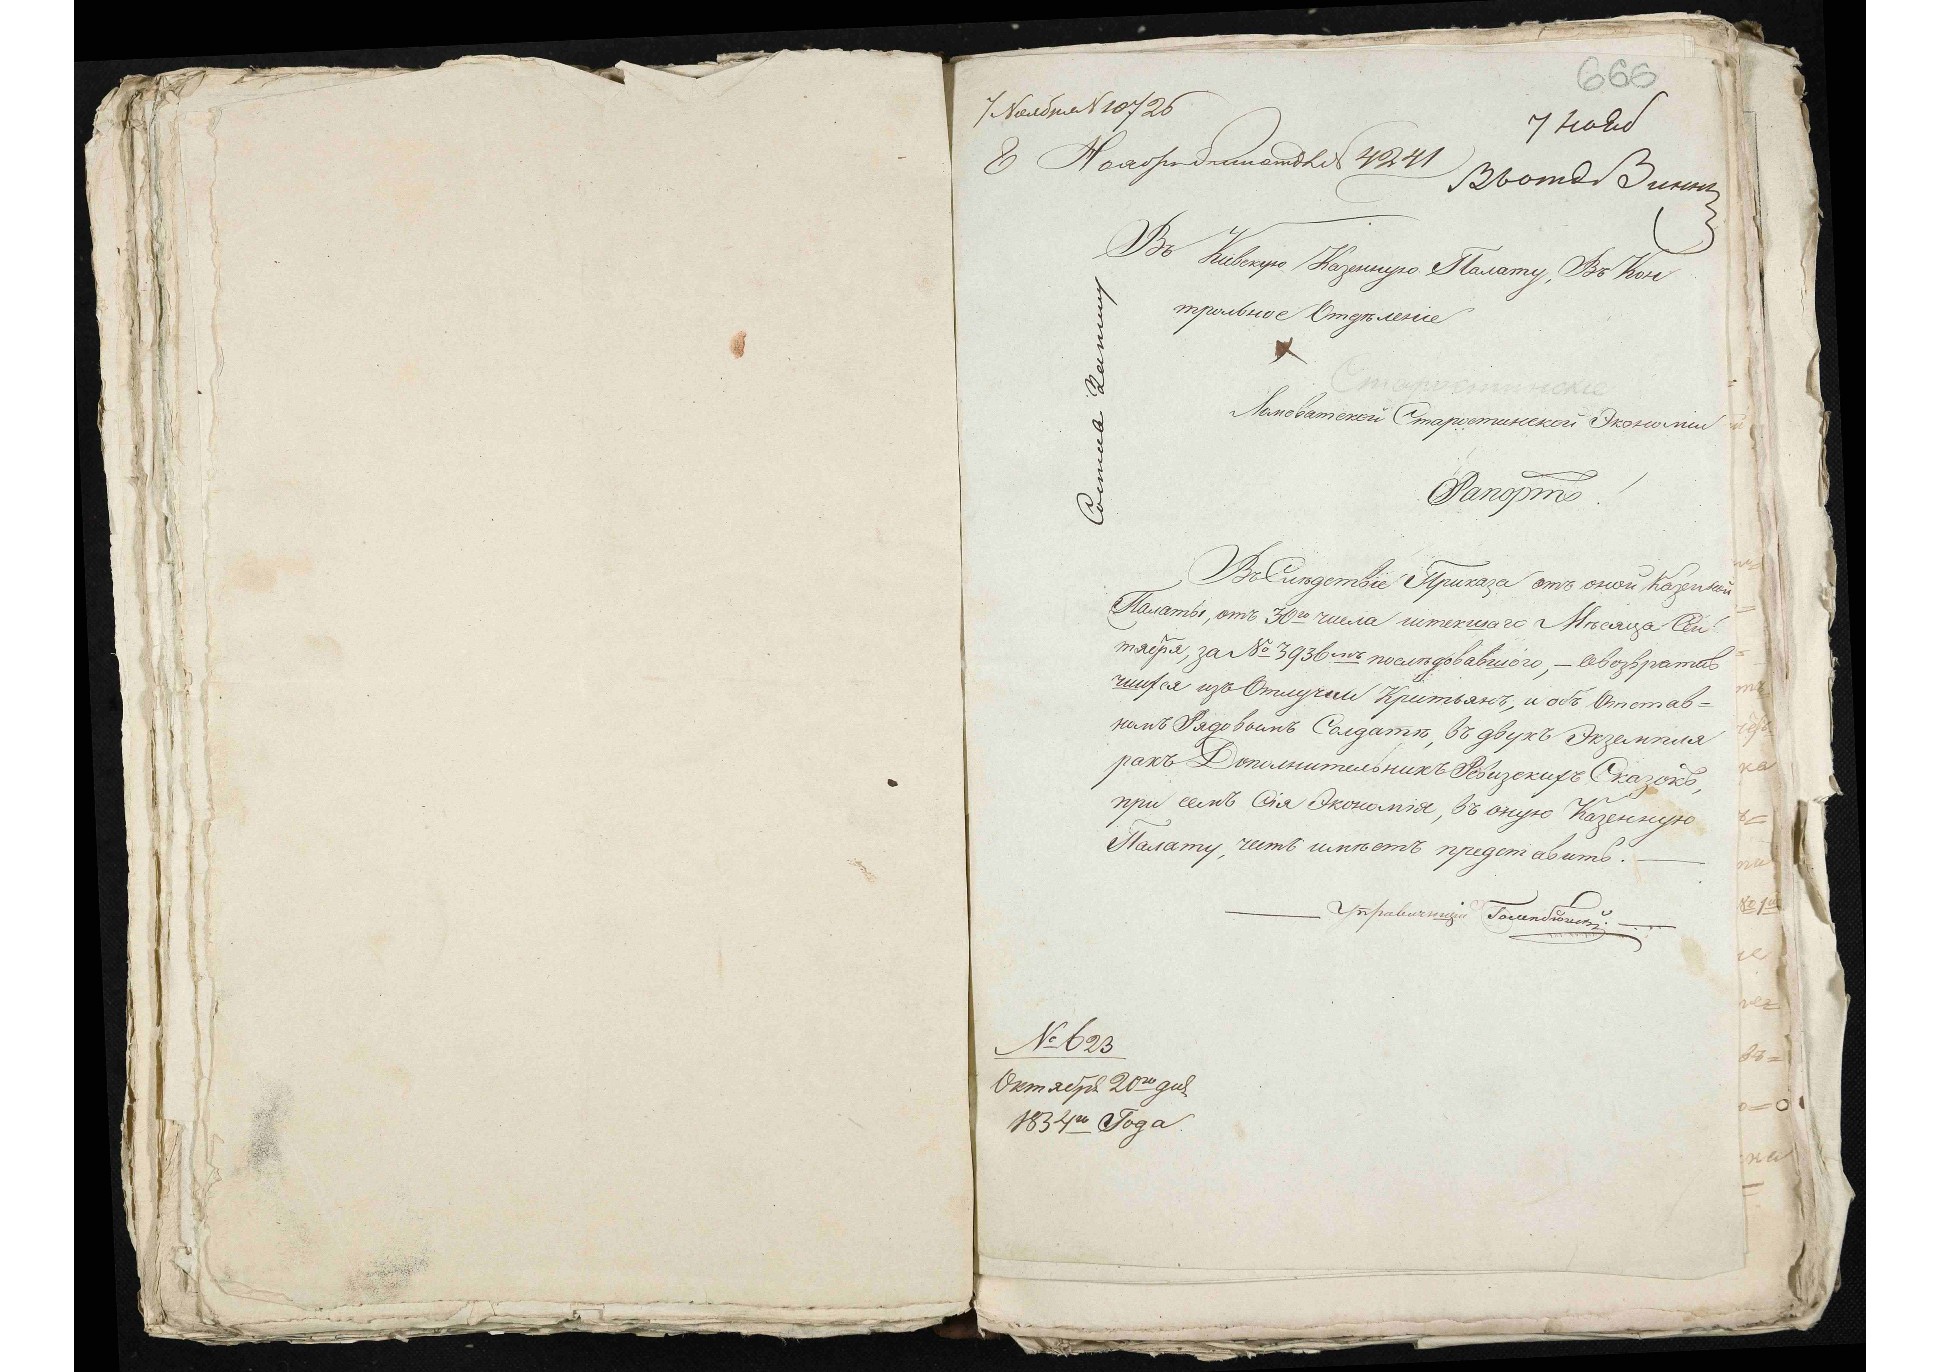 666
7 Ноября N 10726
7 Нояб
8 Ноября № 4241
Въ отд Винн
Въ Кіевскую Казенную Палату, Въ Кон
трольное Отдѣленіе
Старостинскіе
Старостинской Экономіи
Рапортъ!
Въ Слѣдствіе Приказа отъ оной Казенной
Палаты, отъ 30го числа истекшаго Мѣсяца Сен
тября, за № 3936мъ послѣдовавшого, — овозвратив
шихся изъ Отлучки Кристьянъ, и объ Отстав=
номъ Рядовымъ Солдатѣ, въ двухъ Экземпля
рахъ Дополнительникъ Ревизскихъ Сказокъ,
при семъ Сія Экономія, въ оную Казенную
Палату, честь имѣетъ представить. —
Управляющій
№ 623
Октября 20го дня
1834го Года